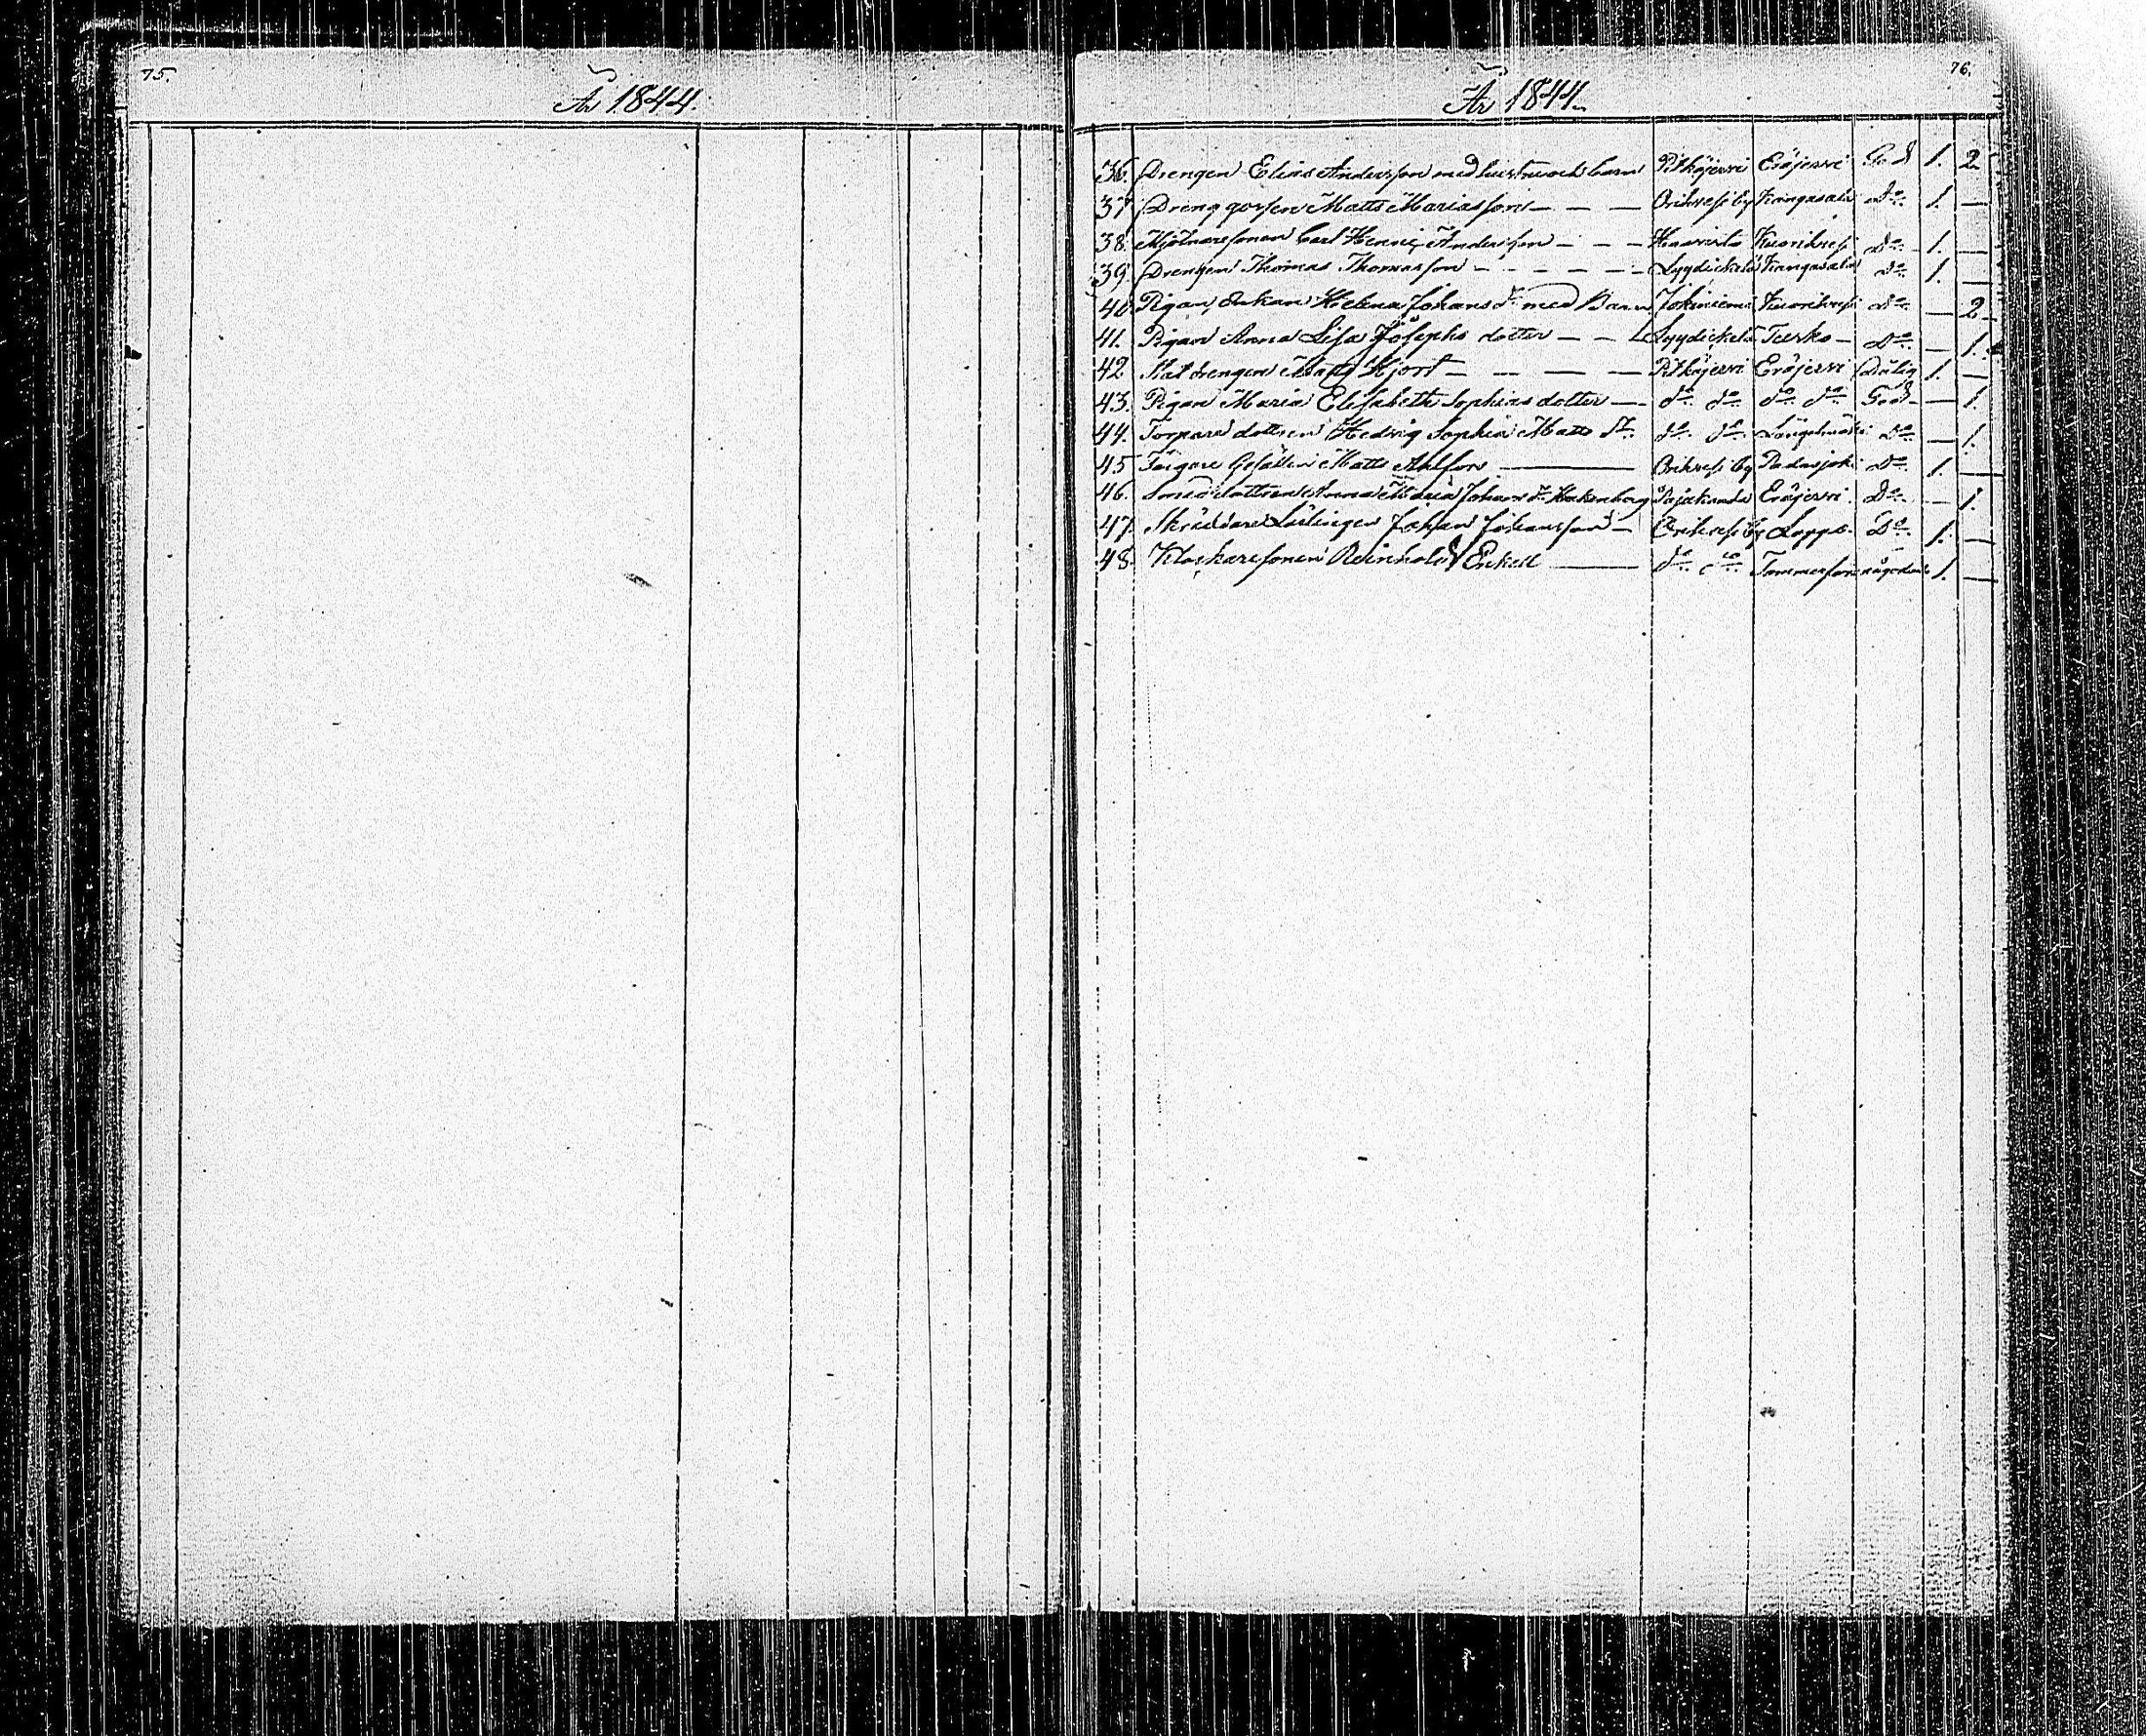 75.
År 1844.
76.
År 1844.
36. Drengen Elias Andersson med hustru och barn Pitkäjervi Eräjervi God 1. 2
37 Dreng gossen Matts Mariasson — — — Orihvesi by Kangasala Do 1. —
38. Mjölnaresonen Carl Henric Andersson — — — Haavisto Kuorihvesi Do 1. —
39. Drengen Thomas Thomasson — — — — — Lyydickälä Kangasala Do 1. —
40 Pigan Enkan Helena Johans dr med Barn Jokiniemi Kuorihvesi Do — 2
41. Pigan Anna Lisa Josephs dotter — — Lyydickelä Teisko — Do — 1.
42 Statdrengen Matts Hjort — — — — Pitkäjervi Eräjervi Dålig 1. —
43. Pigan Maria Elisabeth Sophias dotter — do do do do God — 1.
44. Torpare dottren Hedvig Sophia Matts dr. do do Längelmäki Do — 1.
45 Färgare Gesällen Matts Ahlfors — Orihvesi by Padasjoki Do 1. —
46. Smed dottren Anna Maria Johans dr Eräjervi Do — 1.
47. Skräddare Lärlingen Johan Johansson — Orihvesi by Loppis Do 1. —
48. Klockaresonen Reinhold Enkell — do do Tammerfors 1. —